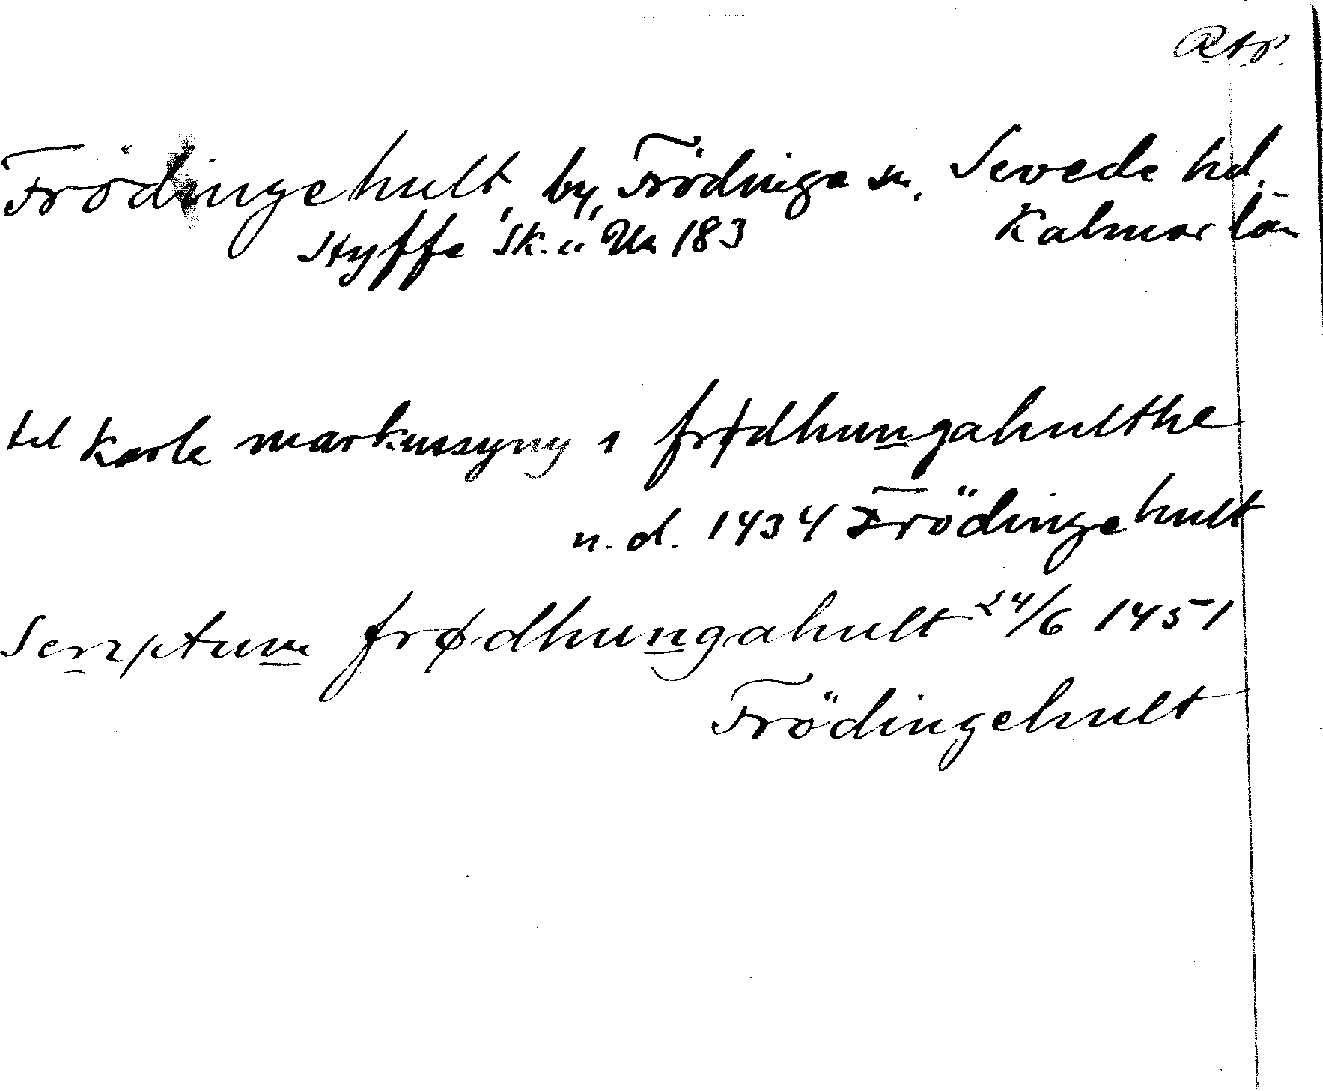 RAP.
Frödingehult, by, Frödinge sn, Sevede hd,
Styffe Sk. u Un 183 Kalmar län
til Karle markussyny i frødhungahulthe
u. d. 1434 Frödingehult
Scriptum frødhungahult 24/6 1451
Frödingehult